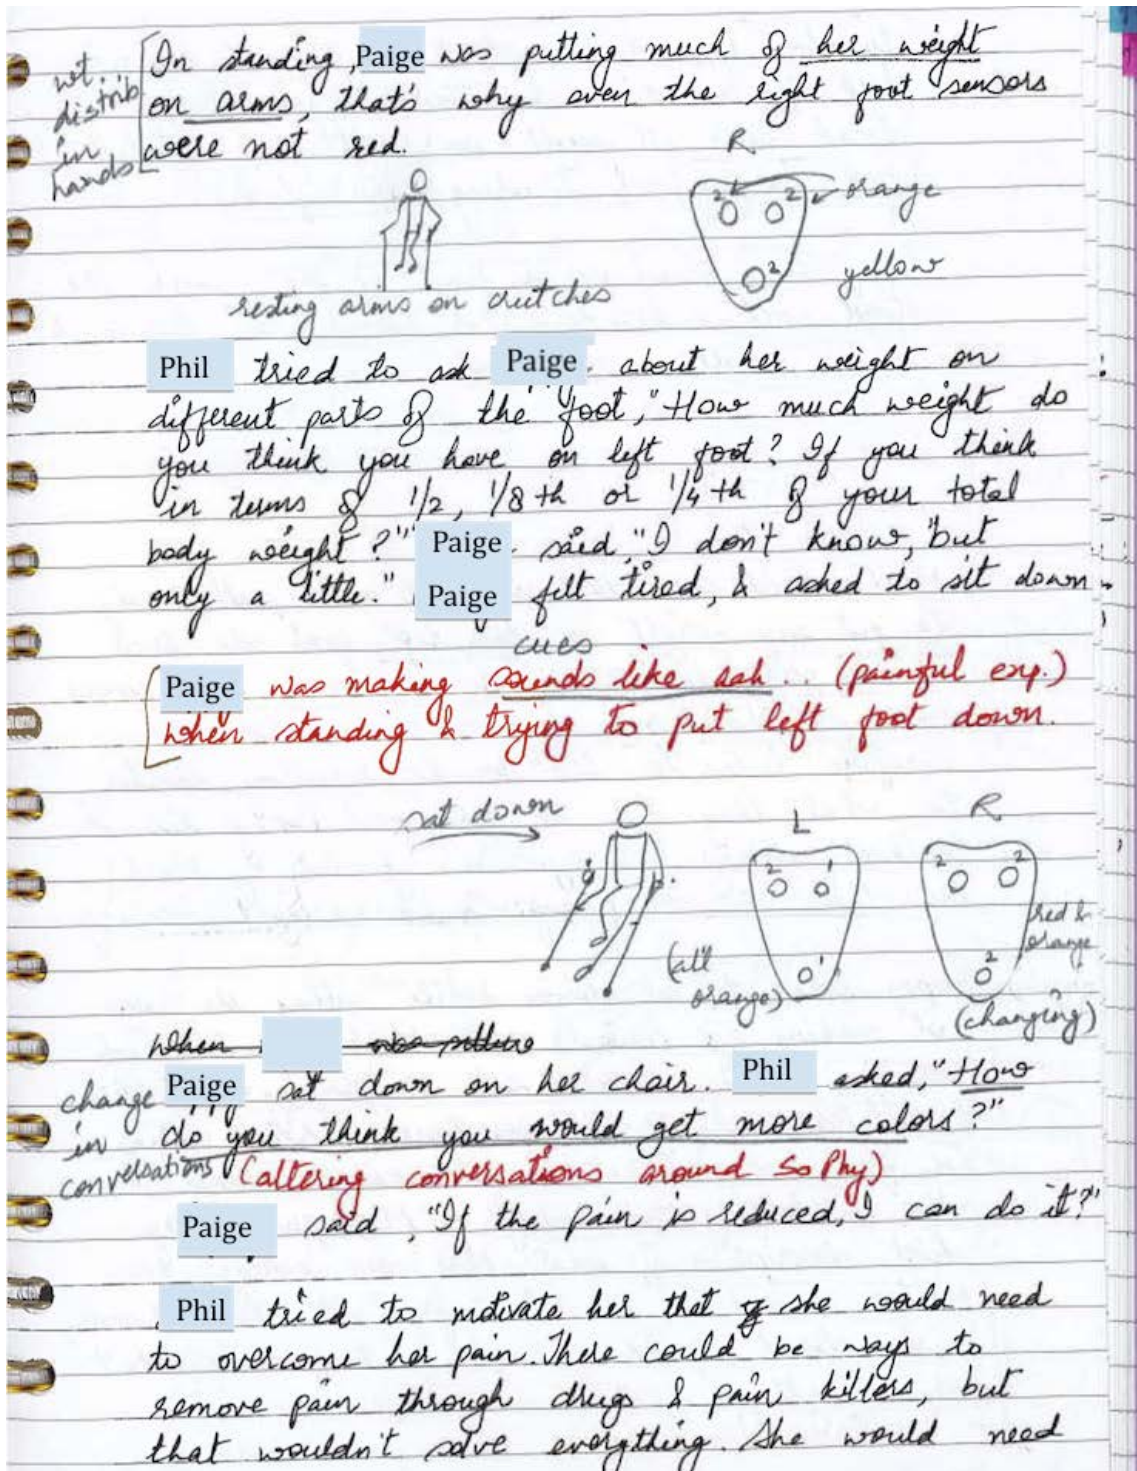 In standing, Paige was putting much of her weight
on arms, that's why even the right foot sensors
were not red.
wt.
distrib
in
hands
R
2 2 orange
2 yellow
resting arms on crutches
Phil tried to ask Paige about her weight on
different parts of the foot, "How much weight do
you think you have on left foot? If you think
in terms of 1/2, 1/8th or 1/4th of your total
body weight?" Paige said, "I don't know, but
only a little." Paige felt tired, & asked to sit down
cues
Paige was making sounds like aah .. (painful exp.)
when standing & trying to put left foot down.
sat down
L
2 1
1
(all
orange)
R
2 2
2
red &
orange
(changing)
when was sitting
Paige sat down on her chair. Phil asked, "How
do you think you would get more colors?"
change
in
conversations
(altering conversations around SoPhy)
Paige said, "If the pain is reduced, I can do it?"
Phil tried to motivate her that if she would need
to overcome her pain. There could be ways to
remove pain through drugs & pain killers, but
that wouldn't solve everything. She would need